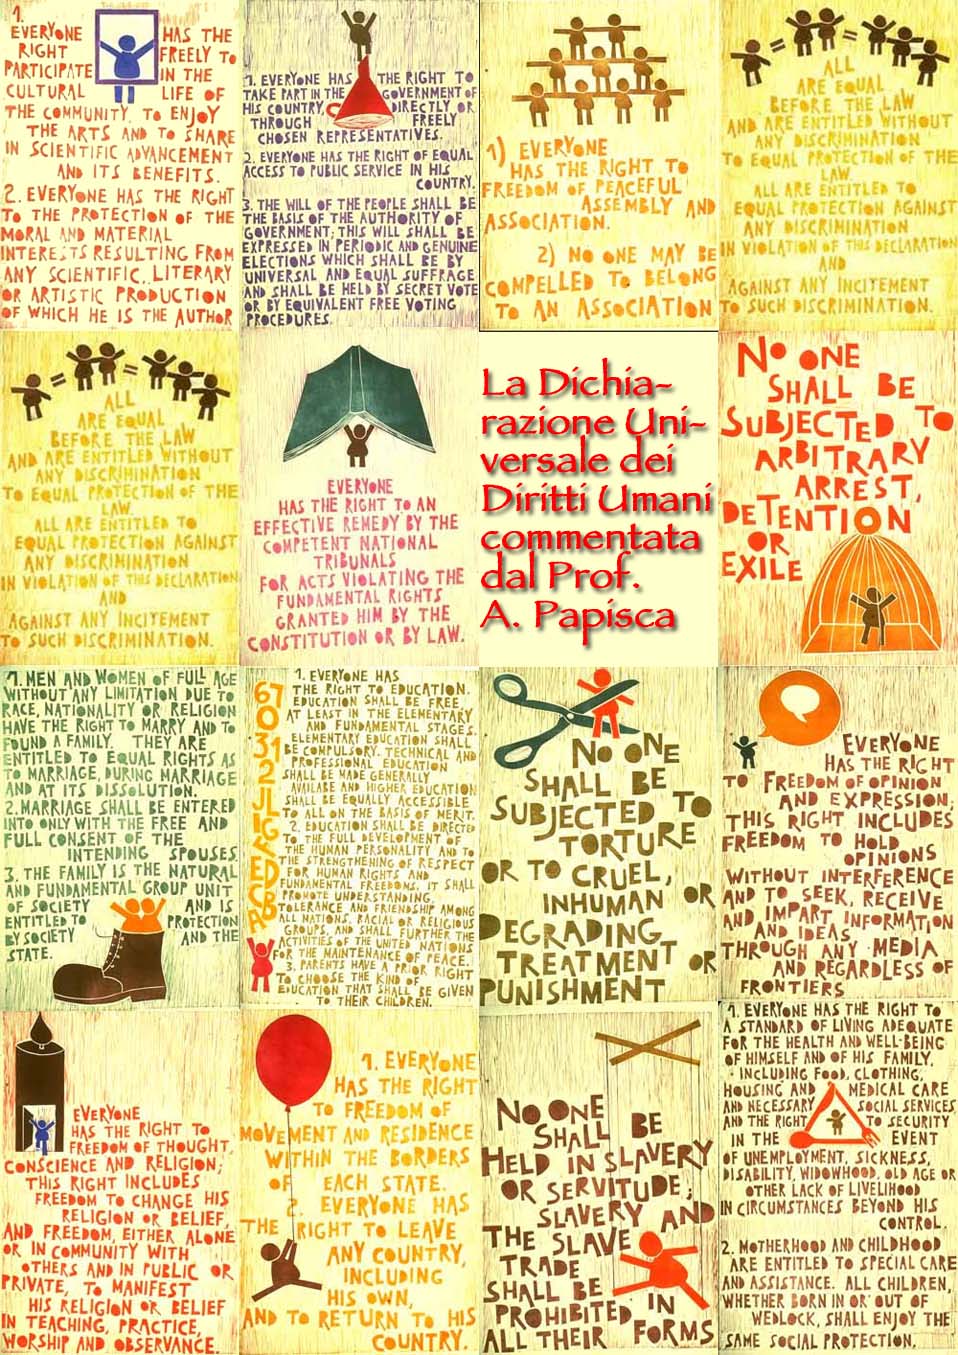 1.
EVERYONE HAS THE
RIGHT FREELY TO
PARTICIPATE IN THE
CULTURAL LIFE OF
THE COMMUNITY, TO ENJOY
THE ARTS AND TO SHARE
IN SCIENTIFIC ADVANCEMENT
AND ITS BENEFITS.
2. EVERYONE HAS THE RIGHT
TO THE PROTECTION OF THE
MORAL AND MATERIAL
INTERESTS RESULTING FROM
ANY SCIENTIFIC, LITERARY
OR ARTISTIC PRODUCTION
OF WHICH HE IS THE AUTHOR
1. EVERYONE HAS THE RIGHT TO
TAKE PART IN THE GOVERNMENT OF
HIS COUNTRY, DIRECTLY OR
THROUGH FREELY
CHOSEN REPRESENTATIVES.
2. EVERYONE HAS THE RIGHT OF EQUAL
ACCESS TO PUBLIC SERVICE IN HIS
COUNTRY.
3. THE WILL OF THE PEOPLE SHALL BE
THE BASIS OF THE AUTHORITY OF
GOVERNMENT; THIS WILL SHALL BE
EXPRESSED IN PERIODIC AND GENUINE
ELECTIONS WHICH SHALL BE BY
UNIVERSAL AND EQUAL SUFFRAGE
AND SHALL BE HELD BY SECRET VOTE
OR BY EQUIVALENT FREE VOTING
PROCEDURES.
1) EVERYONE
HAS THE RIGHT TO
FREEDOM OF PEACEFUL
ASSEMBLY AND
ASSOCIATION.
2) NO ONE MAY BE
COMPELLED TO BELONG
TO AN ASSOCIATION
= = =
ALL
ARE EQUAL
BEFORE THE LAW
AND ARE ENTITLED WITHOUT
ANY DISCRIMINATION
TO EQUAL PROTECTION OF THE
LAW.
ALL ARE ENTITLED TO
EQUAL PROTECTION AGAINST
ANY DISCRIMINATION
IN VIOLATION OF THIS DECLARATION
AND
AGAINST ANY INCITEMENT
TO SUCH DISCRIMINATION.
= = =
ALL
ARE EQUAL
BEFORE THE LAW
AND ARE ENTITLED WITHOUT
ANY DISCRIMINATION
TO EQUAL PROTECTION OF THE
LAW.
ALL ARE ENTITLED TO
EQUAL PROTECTION AGAINST
ANY DISCRIMINATION
IN VIOLATION OF THIS DECLARATION
AND
AGAINST ANY INCITEMENT
TO SUCH DISCRIMINATION.
EVERYONE
HAS THE RIGHT TO AN
EFFECTIVE REMEDY BY THE
COMPETENT NATIONAL
TRIBUNALS
FOR ACTS VIOLATING THE
FUNDAMENTAL RIGHTS
GRANTED HIM BY THE
CONSTITUTION OR BY LAW.
La Dichia-
razione Uni-
versale dei
Diritti Umani
commentata
dal Prof.
A. Papisca
NO ONE
SHALL BE
SUBJECTED TO
ARBITRARY
ARREST,
DETENTION
OR
EXILE
1. MEN AND WOMEN OF FULL AGE
WITHOUT ANY LIMITATION DUE TO
RACE, NATIONALITY OR RELIGION
HAVE THE RIGHT TO MARRY AND TO
FOUND A FAMILY. THEY ARE
ENTITLED TO EQUAL RIGHTS AS
TO MARRIAGE, DURING MARRIAGE
AND AT ITS DISSOLUTION.
2. MARRIAGE SHALL BE ENTERED
INTO ONLY WITH THE FREE AND
FULL CONSENT OF THE
INTENDING SPOUSES.
3. THE FAMILY IS THE NATURAL
AND FUNDAMENTAL GROUP UNIT
OF SOCIETY AND IS
ENTITLED TO PROTECTION
BY SOCIETY AND THE
STATE.
1. EVERYONE HAS
THE RIGHT TO EDUCATION.
EDUCATION SHALL BE FREE,
AT LEAST IN THE ELEMENTARY
AND FUNDAMENTAL STAGES.
ELEMENTARY EDUCATION SHALL
BE COMPULSORY. TECHNICAL AND
PROFESSIONAL EDUCATION
SHALL BE MADE GENERALLY
AVAILABE AND HIGHER EDUCATION
SHALL BE EQUALLY ACCESSIBLE
TO ALL ON THE BASIS OF MERIT.
2. EDUCATION SHALL BE DIRECTED
TO THE FULL DEVELOPMENT OF
THE HUMAN PERSONALITY AND TO
THE STRENGTHENING OF RESPECT
FOR HUMAN RIGHTS AND
FUNDAMENTAL FREEDOMS. IT SHALL
PROMOTE UNDERSTANDING,
TOLERANCE AND FRIENDSHIP AMONG
ALL NATIONS, RACIAL OR RELIGIOUS
GROUPS, AND SHALL FURTHER THE
ACTIVITIES OF THE UNITED NATIONS
FOR THE MAINTENANCE OF PEACE.
3. PARENTS HAVE A PRIOR RIGHT
TO CHOOSE THE KIND OF
EDUCATION THAT SHALL BE GIVEN
TO THEIR CHILDREN.
NO ONE
SHALL BE
SUBJECTED TO
TORTURE
OR TO CRUEL,
INHUMAN OR
DEGRADING
TREATMENT OR
PUNISHMENT
EVERYONE
HAS THE RIGHT
TO FREEDOM OF OPINION
AND EXPRESSION;
THIS RIGHT INCLUDES
FREEDOM TO HOLD
OPINIONS
WITHOUT INTERFERENCE
AND TO SEEK, RECEIVE
AND IMPART INFORMATION
AND IDEAS
THROUGH ANY MEDIA
AND REGARDLESS OF
FRONTIERS
EVERYONE
HAS THE RIGHT TO
FREEDOM OF THOUGHT,
CONSCIENCE AND RELIGION;
THIS RIGHT INCLUDES
FREEDOM TO CHANGE HIS
RELIGION OR BELIEF,
AND FREEDOM, EITHER ALONE
OR IN COMMUNITY WITH
OTHERS AND IN PUBLIC OR
PRIVATE, TO MANIFEST
HIS RELIGION OR BELIEF
IN TEACHING, PRACTICE,
WORSHIP AND OBSERVANCE.
1. EVERYONE
HAS THE RIGHT
TO FREEDOM OF
MOVEMENT AND RESIDENCE
WITHIN THE BORDERS
OF EACH STATE.
2. EVERYONE HAS
THE RIGHT TO LEAVE
ANY COUNTRY,
INCLUDING
HIS OWN,
AND TO RETURN TO HIS
COUNTRY.
NO ONE
SHALL BE
HELD IN SLAVERY
OR SERVITUDE;
SLAVERY AND
THE SLAVE
TRADE
SHALL BE
PROHIBITED IN
ALL THEIR FORMS
1. EVERYONE HAS THE RIGHT TO
A STANDARD OF LIVING ADEQUATE
FOR THE HEALTH AND WELL-BEING
OF HIMSELF AND OF HIS FAMILY,
INCLUDING FOOD, CLOTHING,
HOUSING AND MEDICAL CARE
AND NECESSARY SOCIAL SERVICES,
AND THE RIGHT TO SECURITY
IN THE EVENT
OF UNEMPLOYMENT, SICKNESS,
DISABILITY, WIDOWHOOD, OLD AGE OR
OTHER LACK OF LIVELIHOOD
IN CIRCUMSTANCES BEYOND HIS
CONTROL.
2. MOTHERHOOD AND CHILDHOOD
ARE ENTITLED TO SPECIAL CARE
AND ASSISTANCE. ALL CHILDREN,
WHETHER BORN IN OR OUT OF
WEDLOCK, SHALL ENJOY THE
SAME SOCIAL PROTECTION.